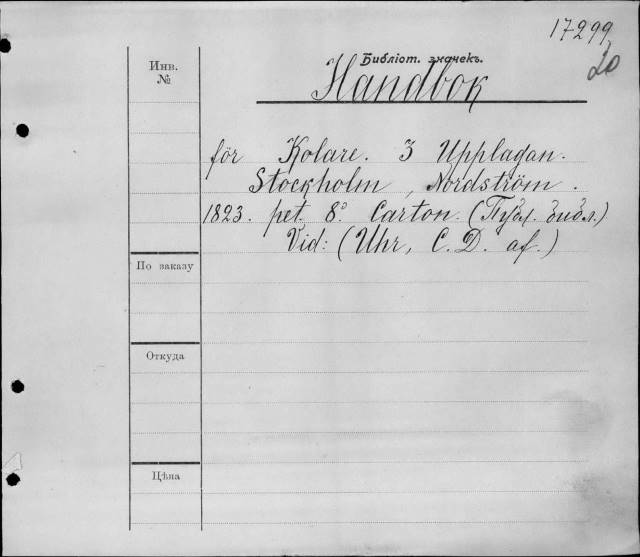 17299
20
Инв.
№
Библіот. значекъ.
Handbok
för Kolare. 3 Uppladan.
Stockholm, Nordström.
1823. pet. 8° Carton. (Публ. библ.)
Vid: (Uhr, C. D. af.)
По заказу
Откуда
Цѣна